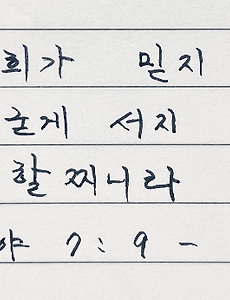 희가 믿지
굳게 서지
할 찌니라
야 7:9 -